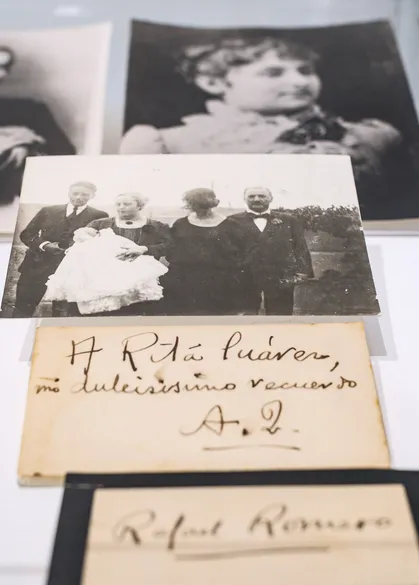 A Rita Suárez,
mi dulcisísimo recuerdo
A. Q.
Rafael Romero